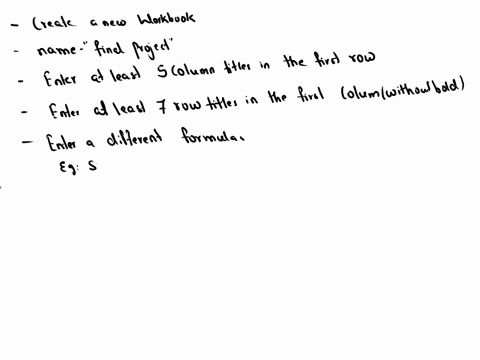 - Create a new Workbook
- name-"final project"
- Enter at least 5 Column titles in the first row
- Enter at least 7 row titles in the first Colum(without bold)
- Enter a different formula.
Eg: S